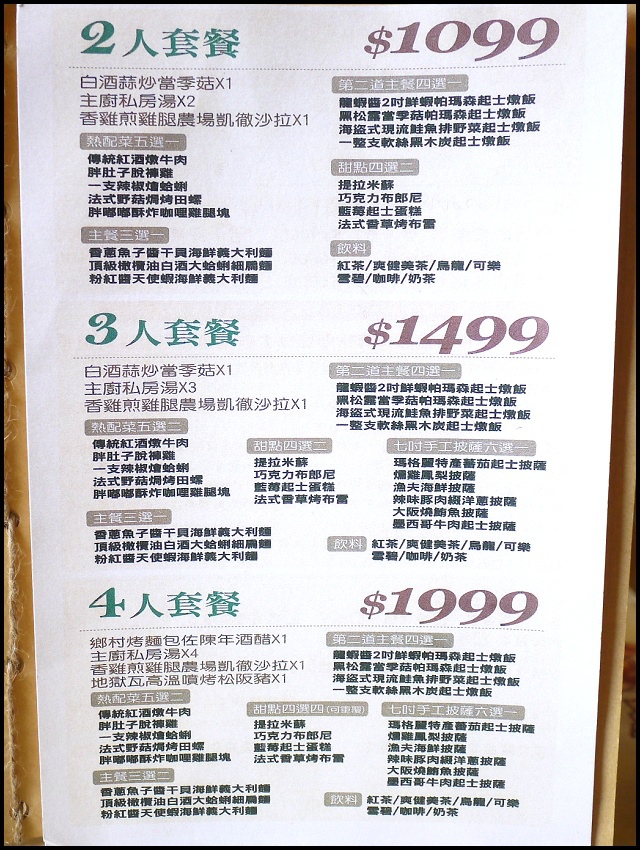 2人套餐 $1099
白酒蒜炒當季菇X1
主廚私房湯X2
香雞煎雞腿農場凱徹沙拉X1
熱配菜五選一
傳統紅酒燉牛肉
胖肚子脫褲雞
一支辣椒燴蛤蜊
法式野菇焗烤田螺
胖嘟嘟酥炸咖哩雞腿塊
主餐三選一
香蔥魚子醬干貝海鮮義大利麵
頂級橄欖油白酒大蛤蜊細扁麵
粉紅醬天使蝦海鮮義大利麵
第二道主餐四選一
龍蝦醬2吋鮮蝦帕瑪森起士燉飯
黑松露當季菇帕瑪森起士燉飯
海盜式現流鮭魚排野菜起士燉飯
一整支軟絲黑木炭起士燉飯
甜點四選二
提拉米蘇
巧克力布郎尼
藍莓起士蛋糕
法式香草烤布雷
飲料
紅茶/爽健美茶/烏龍/可樂
雪碧/咖啡/奶茶
3人套餐 $1499
白酒蒜炒當季菇X1
主廚私房湯X3
香雞煎雞腿農場凱徹沙拉X1
熱配菜五選二
傳統紅酒燉牛肉
胖肚子脫褲雞
一支辣椒燴蛤蜊
法式野菇焗烤田螺
胖嘟嘟酥炸咖哩雞腿塊
主餐三選一
香蔥魚子醬干貝海鮮義大利麵
頂級橄欖油白酒大蛤蜊細扁麵
粉紅醬天使蝦海鮮義大利麵
第二道主餐四選一
龍蝦醬2吋鮮蝦帕瑪森起士燉飯
黑松露當季菇帕瑪森起士燉飯
海盜式現流鮭魚排野菜起士燉飯
一整支軟絲黑木炭起士燉飯
甜點四選二
提拉米蘇
巧克力布郎尼
藍莓起士蛋糕
法式香草烤布雷
七吋手工披薩六選一
瑪格麗特產蕃茄起士披薩
燻雞鳳梨披薩
漁夫海鮮披薩
辣味豚肉綴洋蔥披薩
大阪燒鮪魚披薩
墨西哥牛肉起士披薩
飲料 紅茶/爽健美茶/烏龍/可樂
雪碧/咖啡/奶茶
4人套餐 $1999
鄉村烤麵包佐陳年酒醋X1
主廚私房湯X4
香雞煎雞腿農場凱徹沙拉X1
地獄瓦高溫噴烤松阪豬X1
熱配菜五選二
傳統紅酒燉牛肉
胖肚子脫褲雞
一支辣椒燴蛤蜊
法式野菇焗烤田螺
胖嘟嘟酥炸咖哩雞腿塊
主餐三選二
香蔥魚子醬干貝海鮮義大利麵
頂級橄欖油白酒大蛤蜊細扁麵
粉紅醬天使蝦海鮮義大利麵
第二道主餐四選一
龍蝦醬2吋鮮蝦帕瑪森起士燉飯
黑松露當季菇帕瑪森起士燉飯
海盜式現流鮭魚排野菜起士燉飯
一整支軟絲黑木炭起士燉飯
甜點四選四(可重覆)
提拉米蘇
巧克力布郎尼
藍莓起士蛋糕
法式香草烤布雷
七吋手工披薩六選一
瑪格麗特產蕃茄起士披薩
燻雞鳳梨披薩
漁夫海鮮披薩
辣味豚肉綴洋蔥披薩
大阪燒鮪魚披薩
墨西哥牛肉起士披薩
飲料 紅茶/爽健美茶/烏龍/可樂
雪碧/咖啡/奶茶